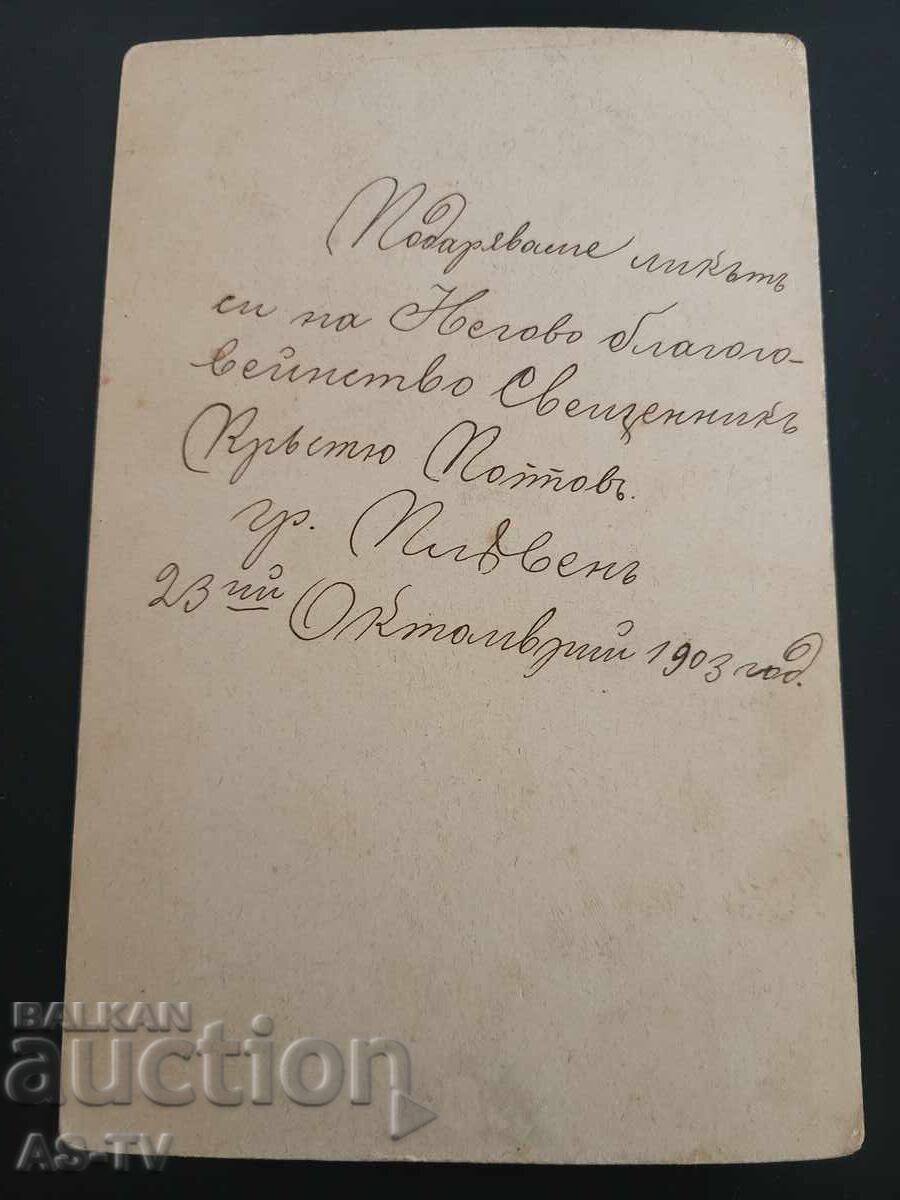 Подаряваме ликътъ
си на Негово благого-
вейнство Свещенникъ
Кръстю Поптовъ.
гр. Плѣвенъ
23ий Октомврий 1903 год.
BALKAN
auction
AS-TV